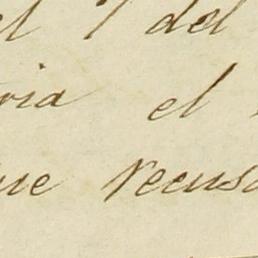 el 7 del
ria el
que recusa